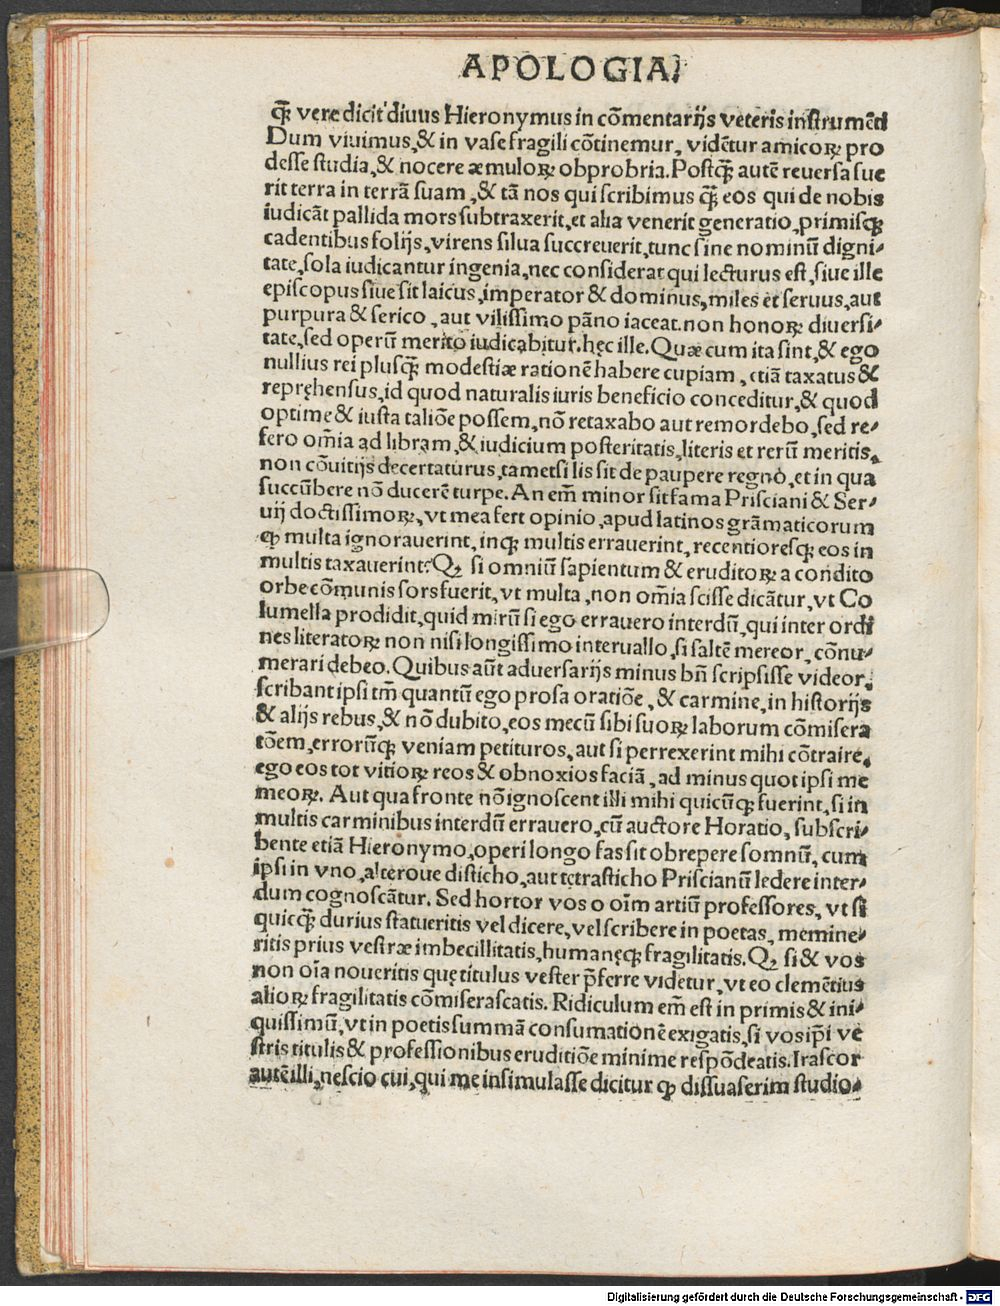 APOLOGIA.
q̄ꝫ vere dicit᷑ diuus Hieronymus in cōmentarijs veteris instrumēti
Dum viuimus,& in vase fragili cōtinemur, vidētur amicoꝝ pro
desse studia,& nocere æmuloꝝ obprobria. Postq̄ꝫ autē reuersa fue
rit terra in terrā suam,& tā nos qui scribimus q̄ꝫ eos qui de nobis
iudicāt pallida mors subtraxerit,et alia venerit generatio,primisqꝫ
cadentibus folijs,virens silua succreuerit,tunc sine nominū digni⸗
tate,sola iudicantur ingenia,nec considerat qui lecturus est,siue ille
episcopus siue sit laicus,imperator & dominus,miles et seruus,aut
purpura & serico,aut vilissimo pāno iaceat.non honoꝝ diuersi⸗
tate,sed operū merito iudicabitur.hęc ille.Quæ cum ita sint,& ego
nullius rei plusq̄ꝫ modestiæ rationē habere cupiam,etiā taxatus &
repręhensus,id quod naturalis iuris beneficio conceditur,& quod
optime & iusta taliōe possem,nō retaxabo aut remordebo,sed re⸗
fero om̄ia ad libram,& iudicium posteritatis,literis et rerū meritis,
non cōuitijs decertaturus,tametsi lis sit de paupere regno,et in qua
succūbere nō ducerē turpe.An em̄ minor sit fama Prisciani & Ser⸗
uij doctissimoꝝ,vt mea fert opinio,apud latinos grāmaticorum
ꝙ multa ignorauerint,inqꝫ multis errauerint,recentioresqꝫ eos in
multis taxauerint?Qꝫ si omniū sapientum & eruditoꝝ a condito
orbe cōmunis sors fuerit,vt multa,non om̄ia scisse dicātur,vt Co
lumella prodidit,quid mirū si ego errauero interdū,qui inter ordi
nes literatoꝝ non nisi longissimo interuallo,si saltē mereor,cōnu⸗
merari debeo.Quibus aūt aduersarijs minus bn̄ scripsisse videor,
scribant ipsi tm̄ quantū ego prosa oratiōe,& carmine,in historijs
& alijs rebus,& nō dubito,eos mecū sibi suoꝝ laborum cōmisera
tōem,errorūqꝫ veniam petituros,aut si perrexerint mihi cōtraire,
ego eos tot vitioꝝ reos & obnoxios faciā,ad minus quot ipsi me
meoꝝ. Aut qua fronte nō ignoscent illi mihi quicūqꝫ fuerint,si in
multis carminibus interdū errauero,cū auctore Horatio,subscri⸗
bente etiā Hieronymo,operi longo fas sit obrepere somnū,cum
ipsi in vno,alteroue disticho,aut tetrasticho Priscianū ledere inter⸗
dum cognoscātur. Sed hortor vos o oīm artiū professores, vt si
quicq̄ꝫ durius statueritis vel dicere,vel scribere in poetas, memine⸗
ritis prius vestræ imbecillitatis,humanęqꝫ fragilitatis.Qꝫ si & vos
non oīa noueritis quę titulus vester p̄ferre videtur,vt eo clemētius
alioꝝ fragilitatis cōmiserascatis. Ridiculum em̄ est in primis & ini⸗
quissimū,vt in poetis summā consumationē exigatis,si vos ip̄i ve
stris titulis & professionibus eruditiōe minime respōdeatis.Irascor
autē illi,nescio cui,qui me insimulasse dicitur ꝙ dissuaserim studio⸗
Digitalisierung gefördert durch die Deutsche Forschungsgemeinschaft - DFG